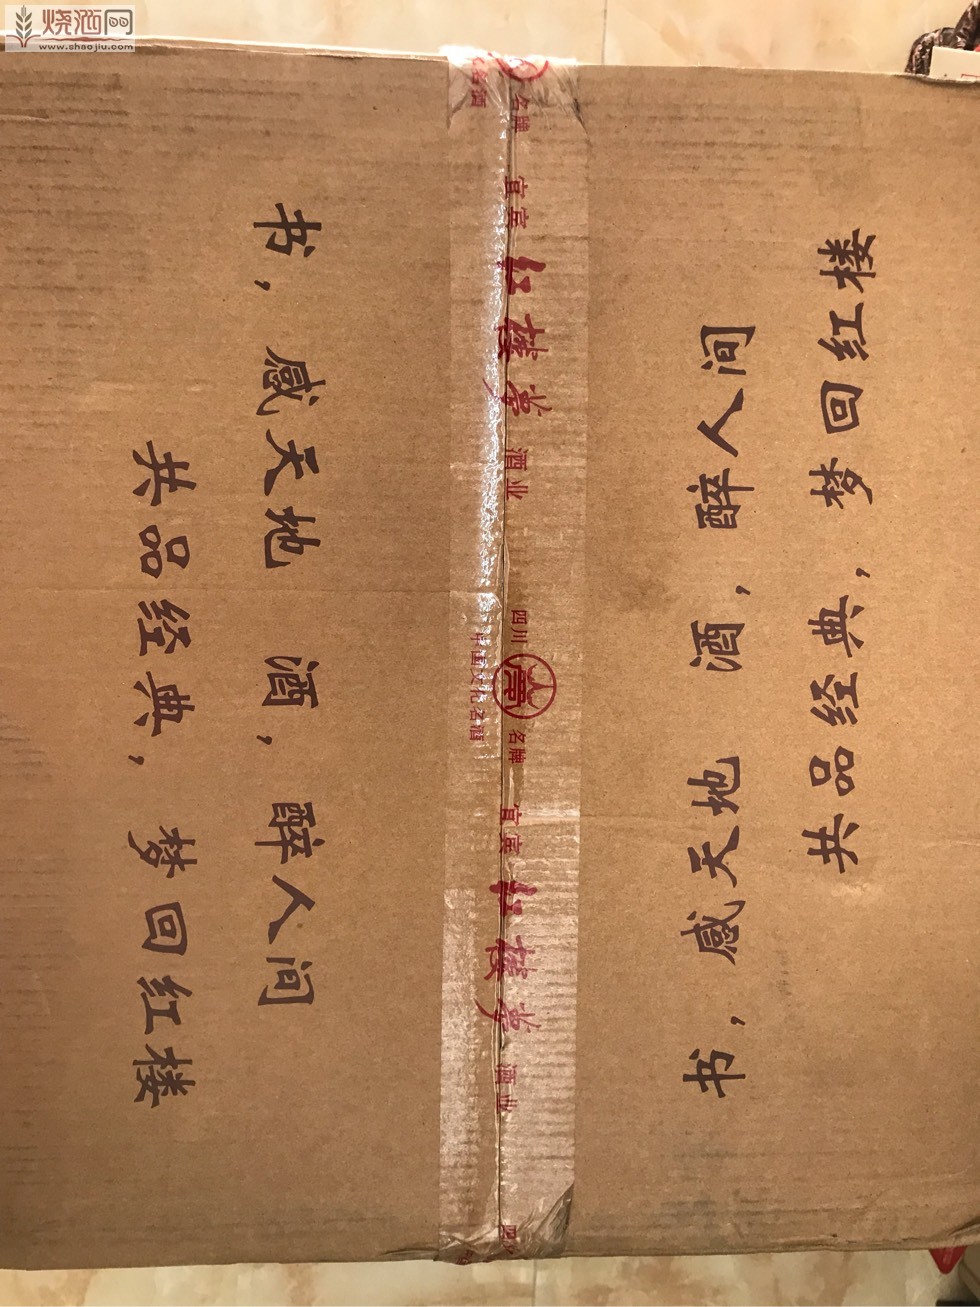 烧酒网
www.shaojiu.com
书，感天地 酒，醉人间
共品经典，梦回红楼
名酒
名牌
宜宾 红楼梦 酒业
四川 名牌
中国文化名酒
宜宾 红楼梦 酒业
四川
书，感天地 酒，醉人间
共品经典，梦回红楼